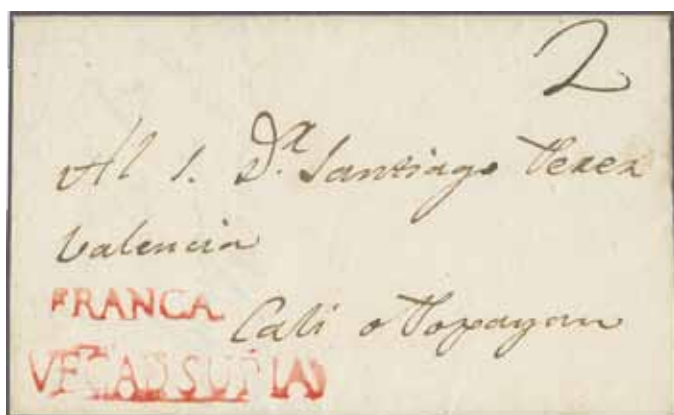 2
Al S. D.ⁿ Santiago Perez
Valencia
FRANCA
Cali o Popayan
VEGADSUPIA